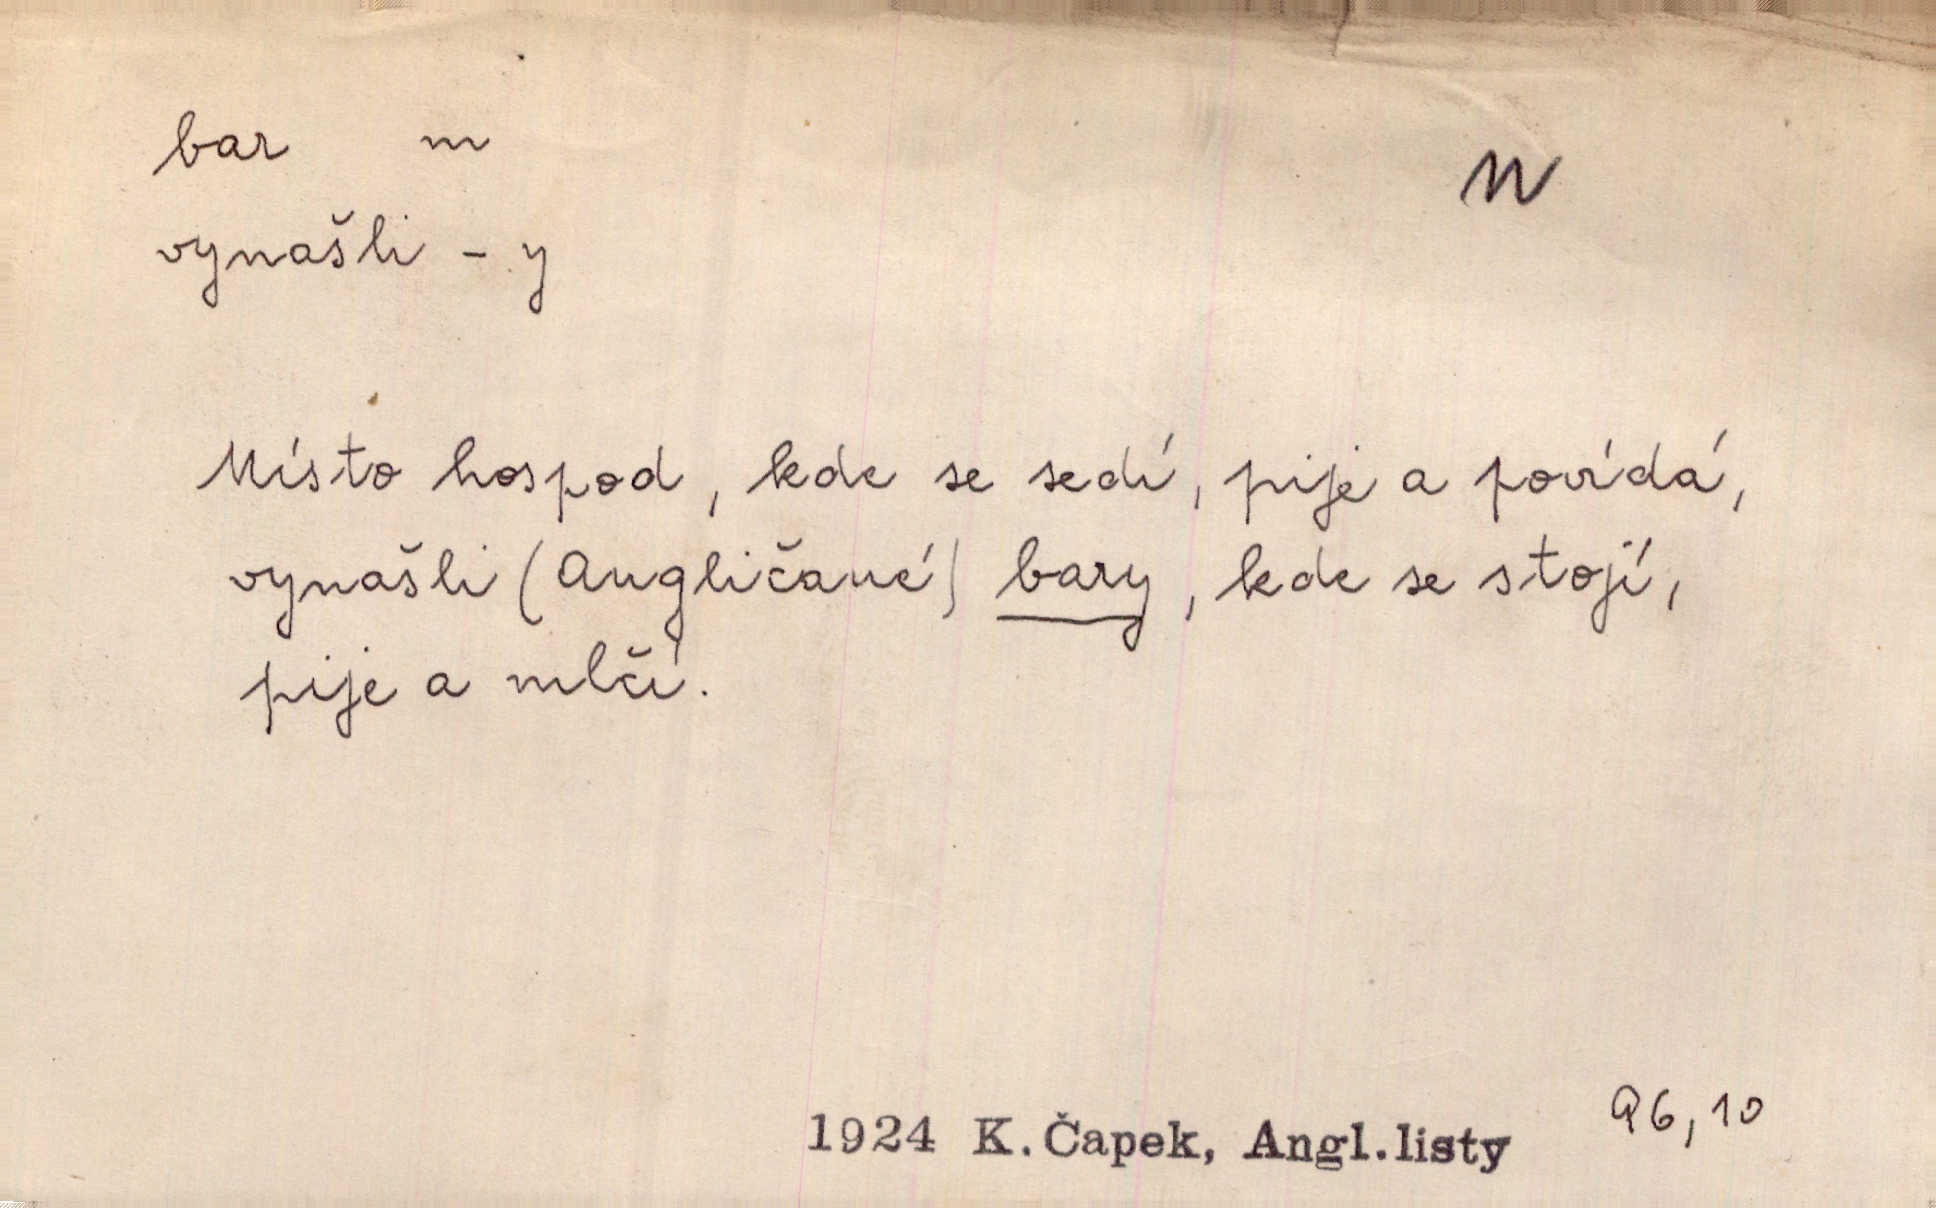 bar m
N
vynašli - y
Místo hospod, kde se sedí, pije a povídá,
vynašli (Angličané) bary, kde se stojí,
pije a mlčí.
1924 K. Čapek, Angl. listy 96, 10